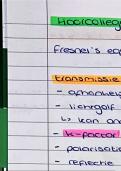 Hoorcolleg
Fresnel's eq
transmissie
- afhankel
- lichtgolf
↳ kan on
- k-factor
- polarisati
- reflectie